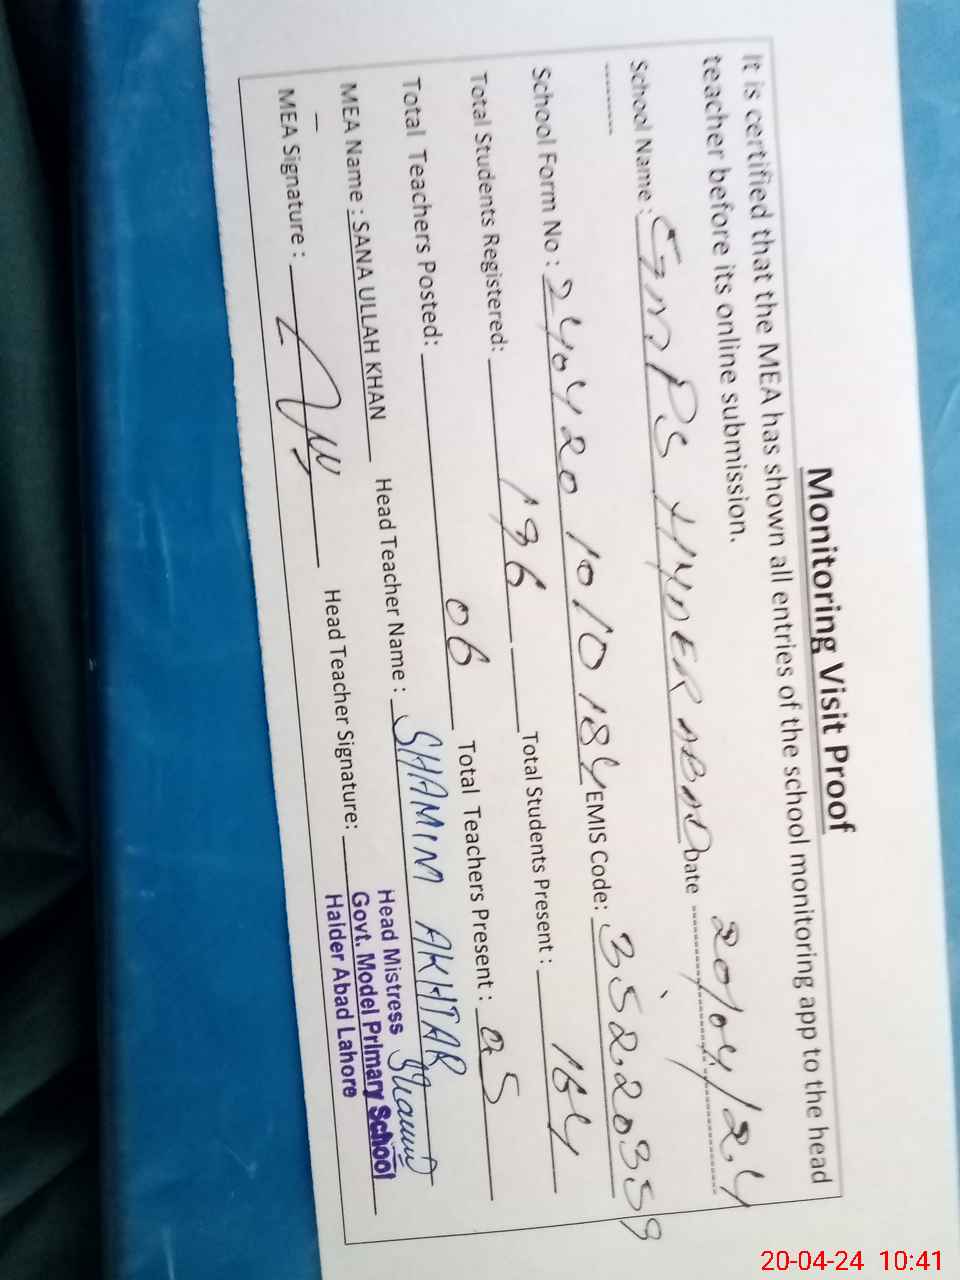 Monitoring Visit Proof
It is certified that the MEA has shown all entries of the school monitoring app to the head
teacher before its online submission.
School Name : GMPS HYDER ABAD Date 20/04/24
School Form No : 2404201010184 EMIS Code: 35220359
Total Students Registered: 196 Total Students Present : 164
Total Teachers Posted: 06 Total Teachers Present : 05
MEA Name : SANA ULLAH KHAN Head Teacher Name : SHAMIM AKHTAR
MEA Signature : Head Teacher Signature: Shamim
Head Mistress
Govt. Model Primary School
Haider Abad Lahore
20-04-24 10:41